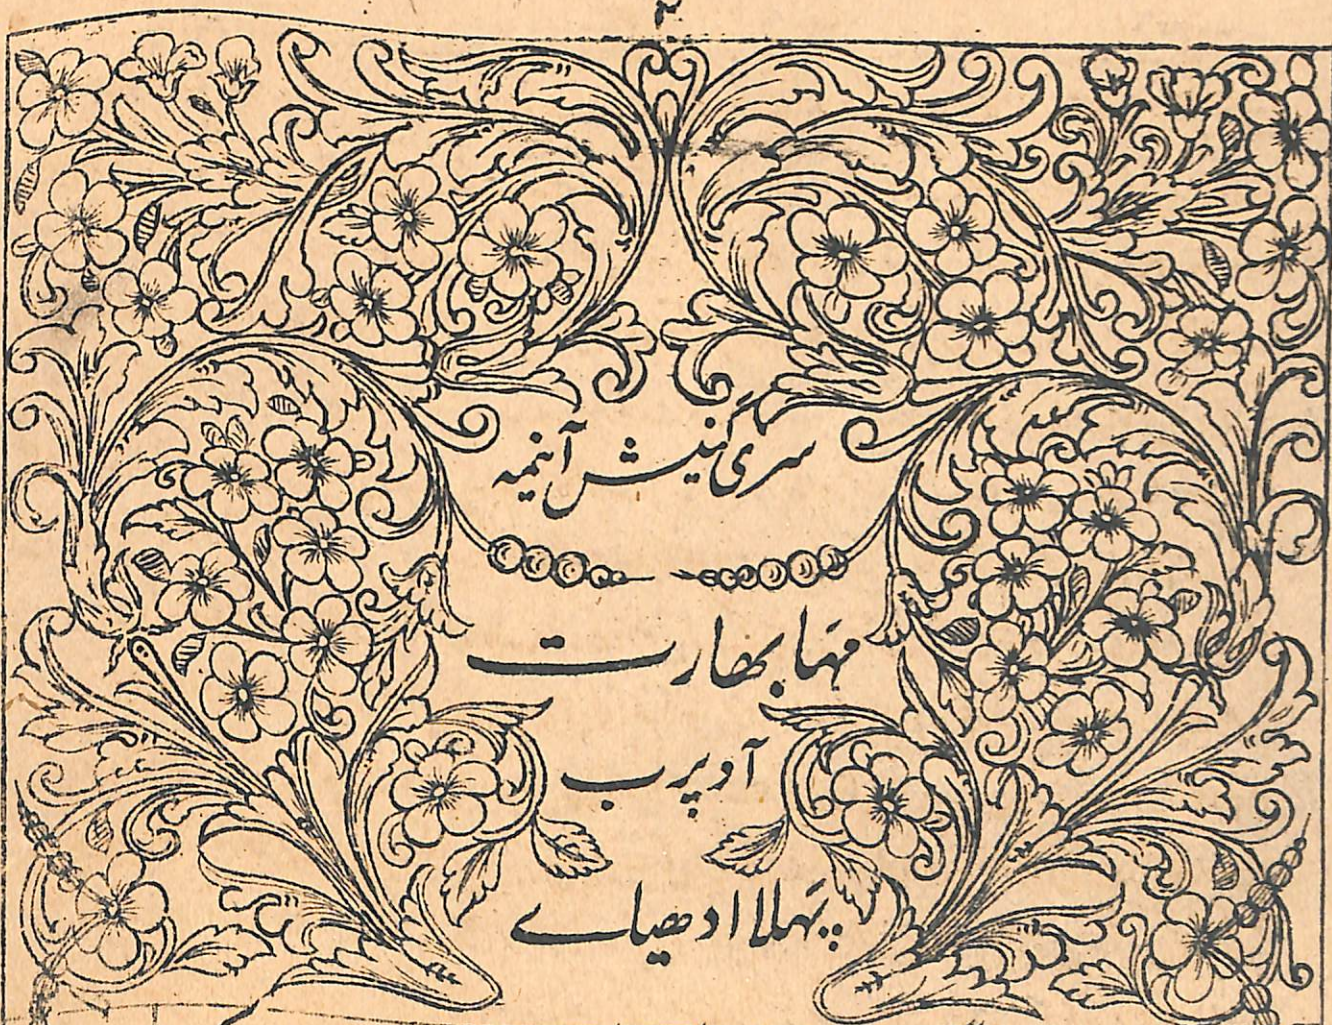 ۲
سری گنیش آینمیہ
مہا بھارت
آد پرب
پہلا ادھیاے